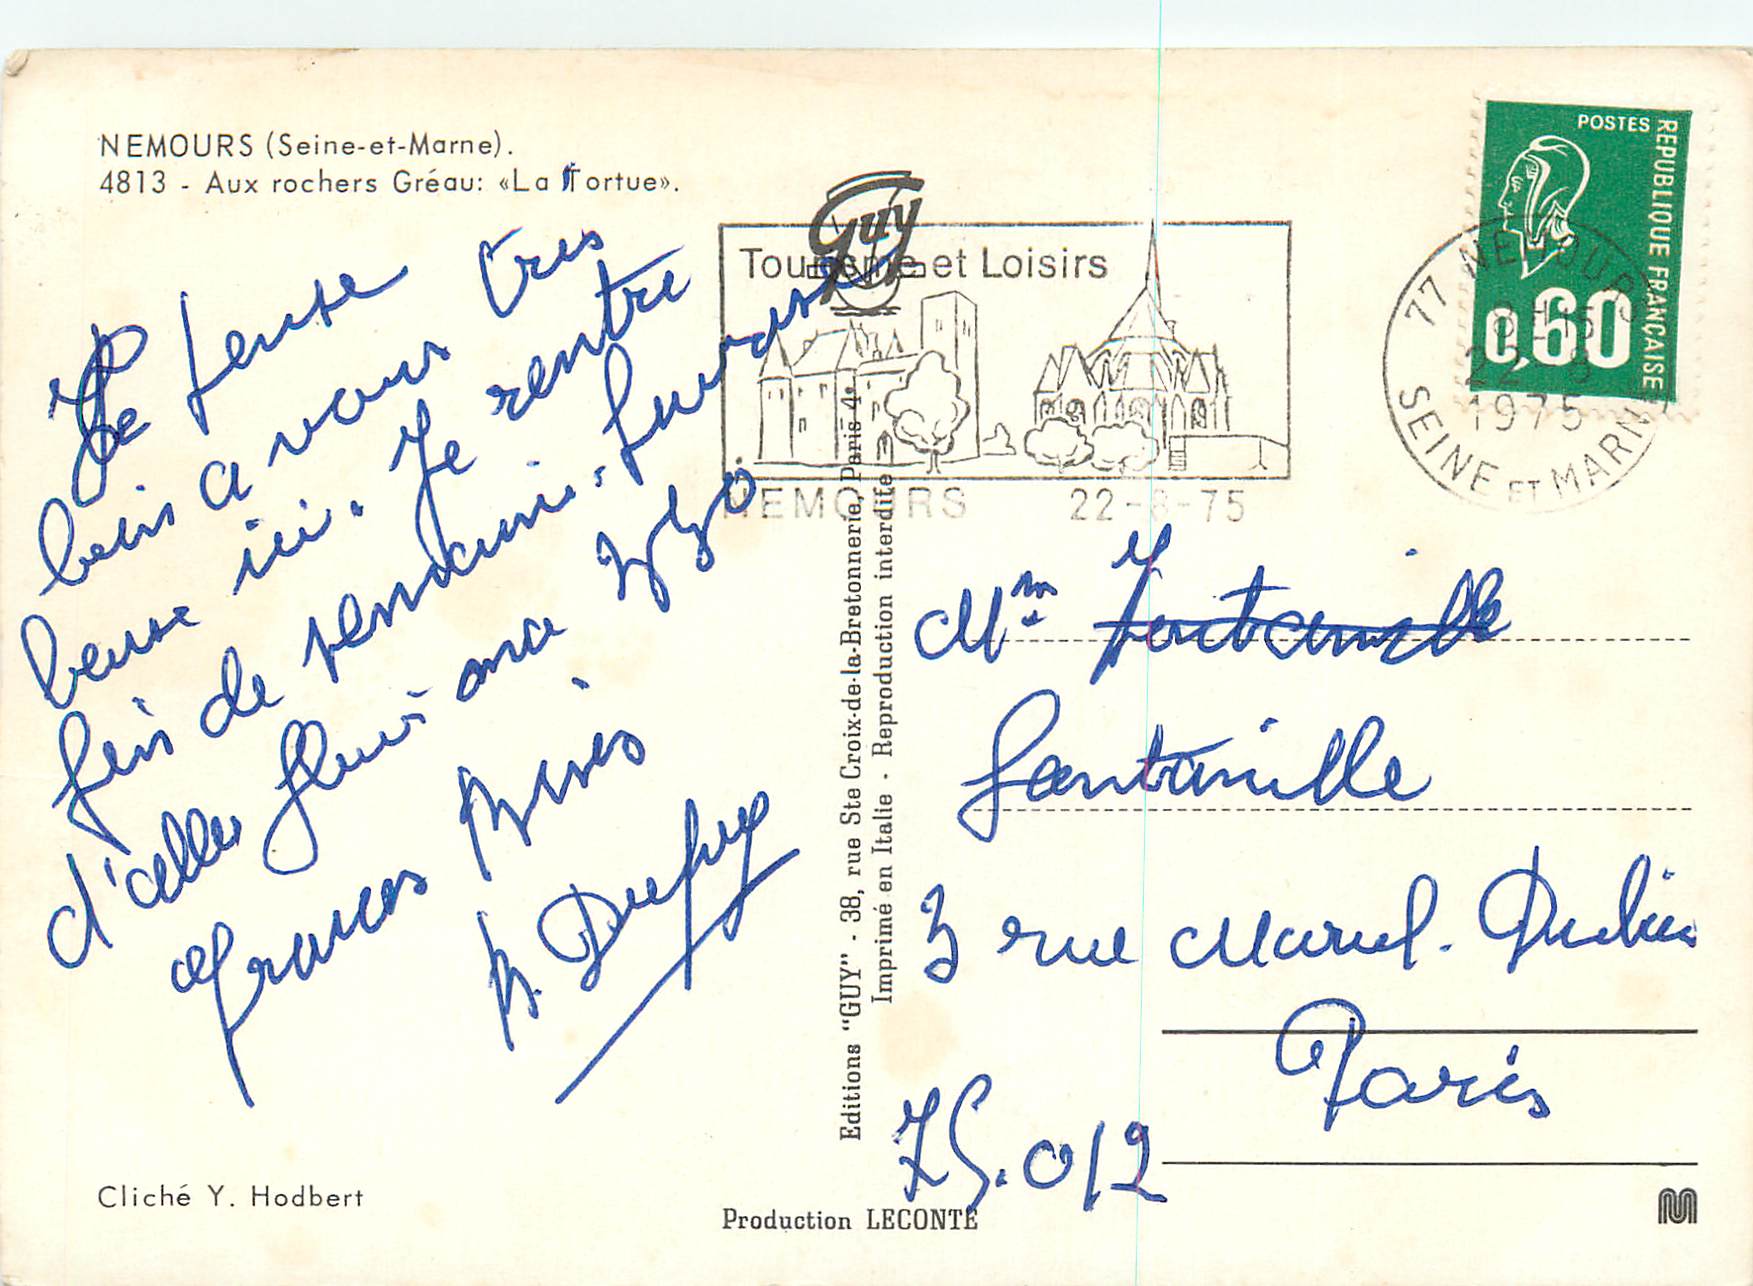 NEMOURS (Seine-et-Marne).
4813 - Aux rochers Gréau: «La Tortue».
Je pense très
bien a vous
ici. Je rentre
fin de semaine.
d'aller
Bises
Dupuy
Cliché Y. Hodbert
Guy
Tourisme et Loisirs
NEMOURS 22-8-75
Editions "GUY" - 38, rue Ste Croix-de-la-Bretonnerie, Paris 4e
Imprimé en Italie - Reproduction interdite
Production LECONTE
POSTES
REPUBLIQUE FRANÇAISE
0,60
77 NEMOURS
22-8
1975
SEINE ET MARNE
Mme
Fontanille
3 rue Marcel. Dubois
Paris
75.012